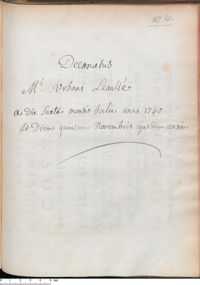 Decanatus
Mri Urbani Leaulté
a die Sexta mensis Julii anni 1740
ad Diem quartum Novembris ejusdem anni.